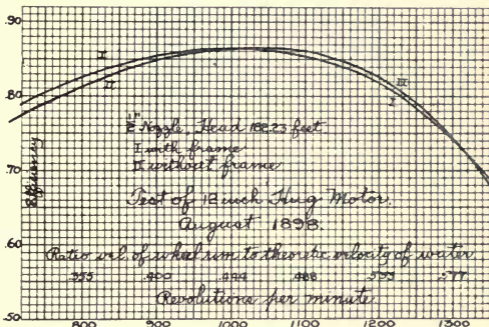 .90
I
II
.80
II
I
1/2" Nozzle, Head 182.23 feet
I with frame
II without frame
Efficiency
.70
Test of 12 inch Hug Motor.
August 1898.
.60
Ratio vel. of wheel rim to theoretic velocity of water
.355 .400 .444 .488 .533 .577
Revolutions per minute
.50
800 900 1000 1100 1200 1300